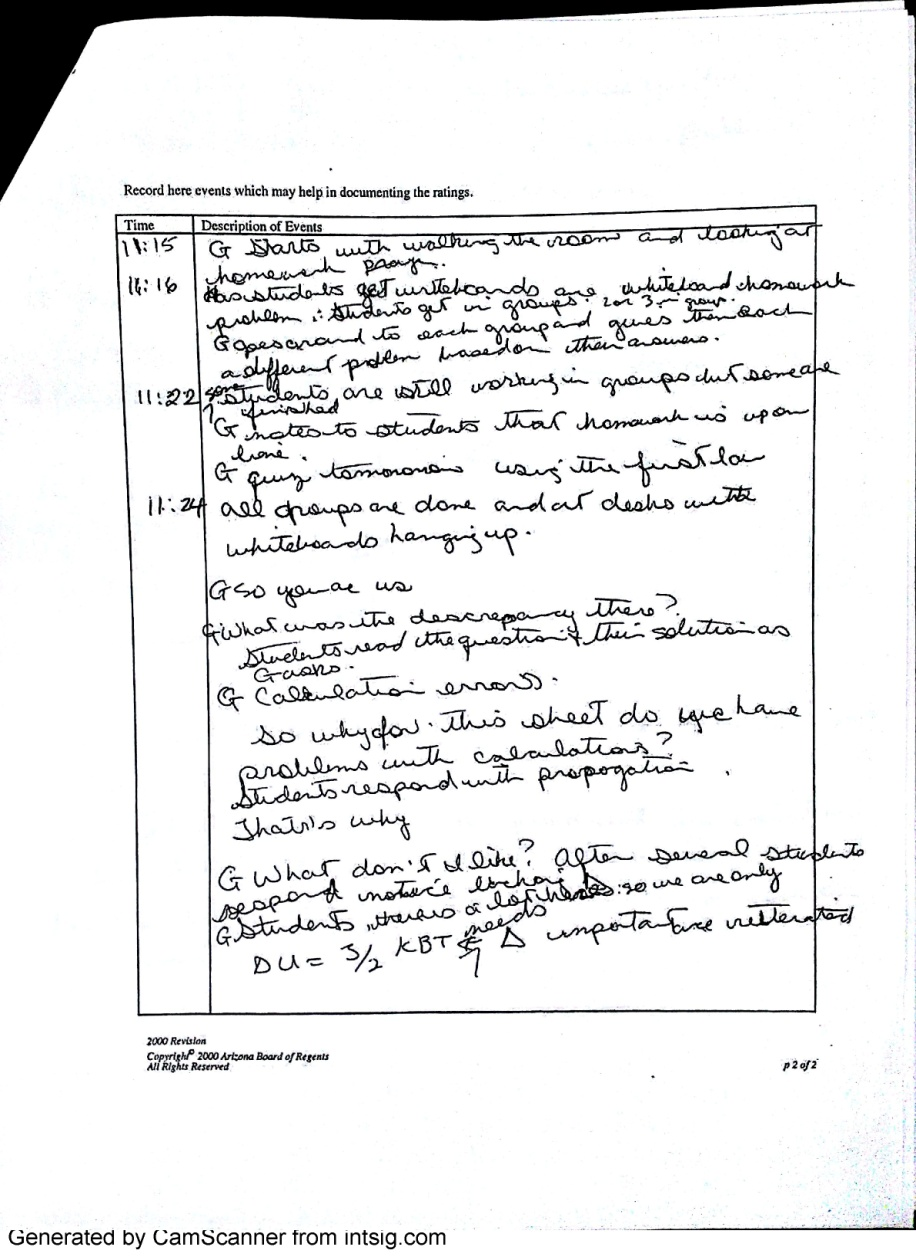 Record here events which may help in documenting the ratings.
Time Description of Events
11:15 G Starts with walking the room and looking at
homework
11:16 students get whiteboards and whiteboard homework
problem : Students get in groups. 2 or 3 in group.
G goes around to each group and gives them each
a different problem based on their answers.
11:22 some students are still working in groups but some are
finished
G notes to students that homework is up on
G quiz tomorrow is using the first law
11:24 all groups are done and at desks with
whiteboards hanging up.
G so
G What was the descrepancy there?
Students read the question & their solution as
G asks.
G Calculation errors.
So why for this sheet do we have
problems with calculations?
Students respond with propogation.
That's why
G What don't I like? After several students
respond
G Students, there is a so we are only
needs
DU = 3/2 KBT Δ
2000 Revision
Copyright© 2000 Arizona Board of Regents
All Rights Reserved
p 2 of 2
Generated by CamScanner from intsig.com